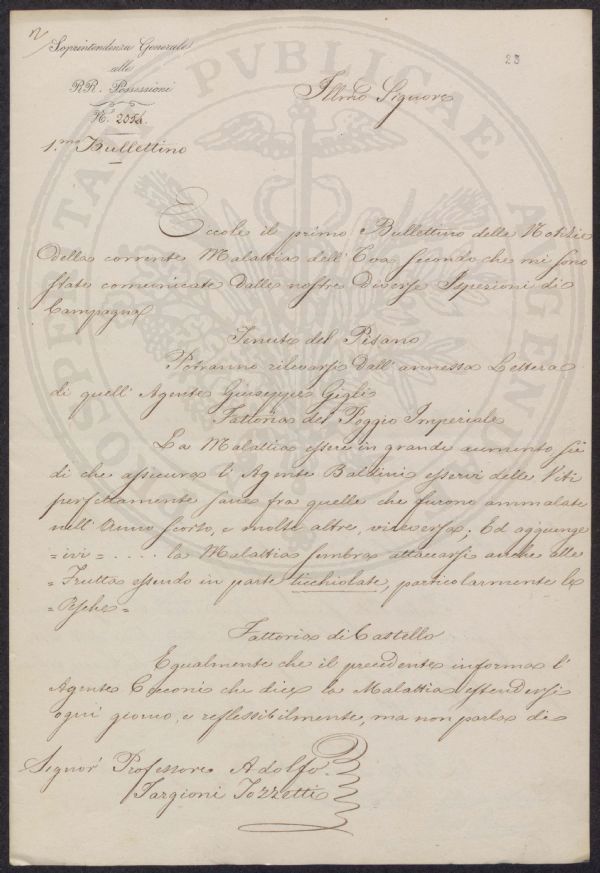 Soprintendenza Generale
alle
RR. Possessioni
N.º 2054.
1.mo Bullettino
23
Illmo Signore
PROSPERITATI PUBLICAE AUGENDAE
Eccole il primo Bullettino delle Notizie
della corrente Malattia dell' Uva secondo che mi sono
state comunicate dalle nostre diverse Ispezioni di
Campagna
Tenute del Pisano
Potranno rilevarsi dall' annessa Lettera
di quell' Agente Giuseppe Gigli
Fattoria del Poggio Imperiale
La Malattia essere in grande aumento, su
di che assicura l' Agente Baldini esservi delle Viti
perfettamente sane fra quelle che furono ammalate
nell' Anno scorso, e molte altre, viceversa; Ed aggiunge
=ivi= .... la Malattia sembra attaccarsi anche alle
=Frutta essendo in parte ticchiolate, particolarmente le
=Pesche=
Fattoria di Castello
Egualmente che il precedente informa l'
Agente Cecconi che dice la Malattia estendersi
ogni giorno, e reflessibilmente, ma non parla di
Signor Professore Adolfo
Targioni Tozzetti